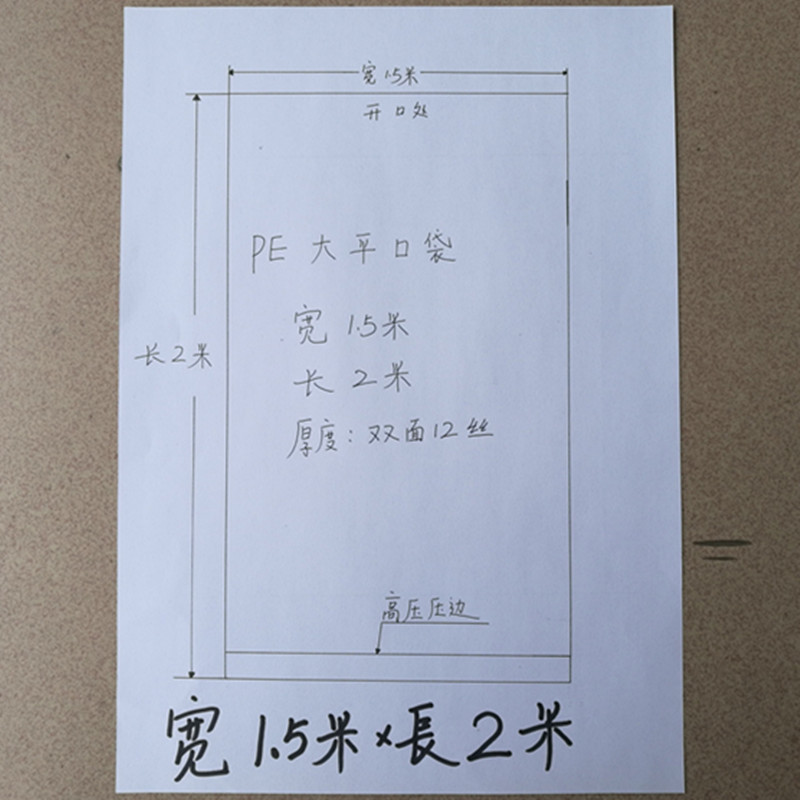 宽1.5米
开口处
PE 大平口袋
宽 1.5米
长2米
长 2米
厚度:双面12丝
高压压边
宽1.5米×長2米